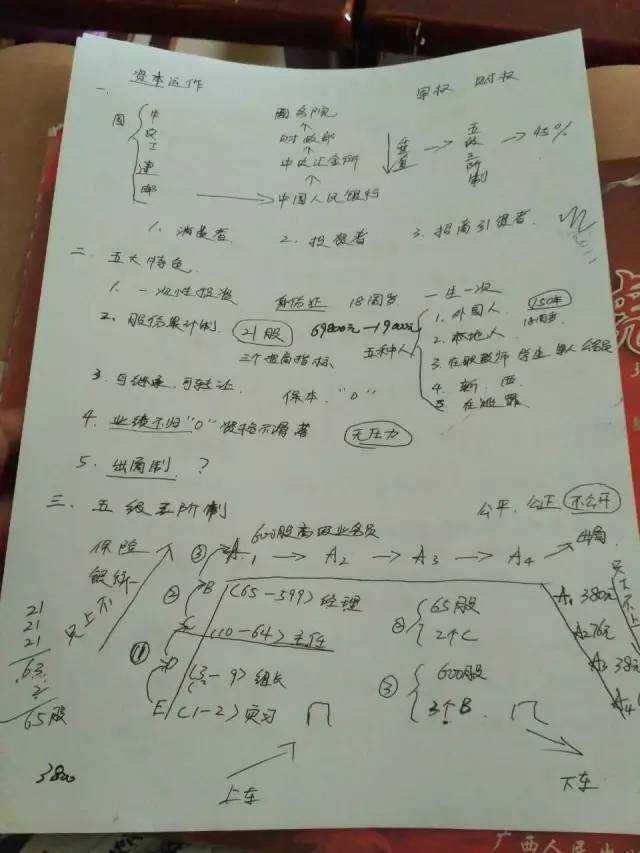 资本运作
一、
国 中 农 工 建 邮
国务院
财政部
中国人民银行
军权 财权
垂直 → 五级三阶制 → 45%
1. 消费者 2. 投资者 3. 招商引资者
二、五大特色
1. 一次性投资 身份证 18周岁 一生一次
2. 股份累计制 21股 69800元—19000元
三个招商指标 五种人
1. 外国人 (50年
18周岁
2. 本地人
3. 在职教师 学生 军人 公务员
4. 新、西
5. 在逃罪
3. 可继承,可转让 保本、"0"
4. 业绩不归"0" 资格不清者 无压力
5. 出局制 ?
三、五级三阶制 公平、公正 不公开
保险
600股高级业务员
③ A1 → A2 → A3 → A4 → 出局
② B (65-599)经理
(10-64)主任
① (3-9)组长
E (1-2)实习
② 65股
2个C
③ 600股
3个B
A1 380元
A2 76元
A3 38元
A4
只上不
21
21
21
63
2
65股
3800
上车
下车
广西人民出